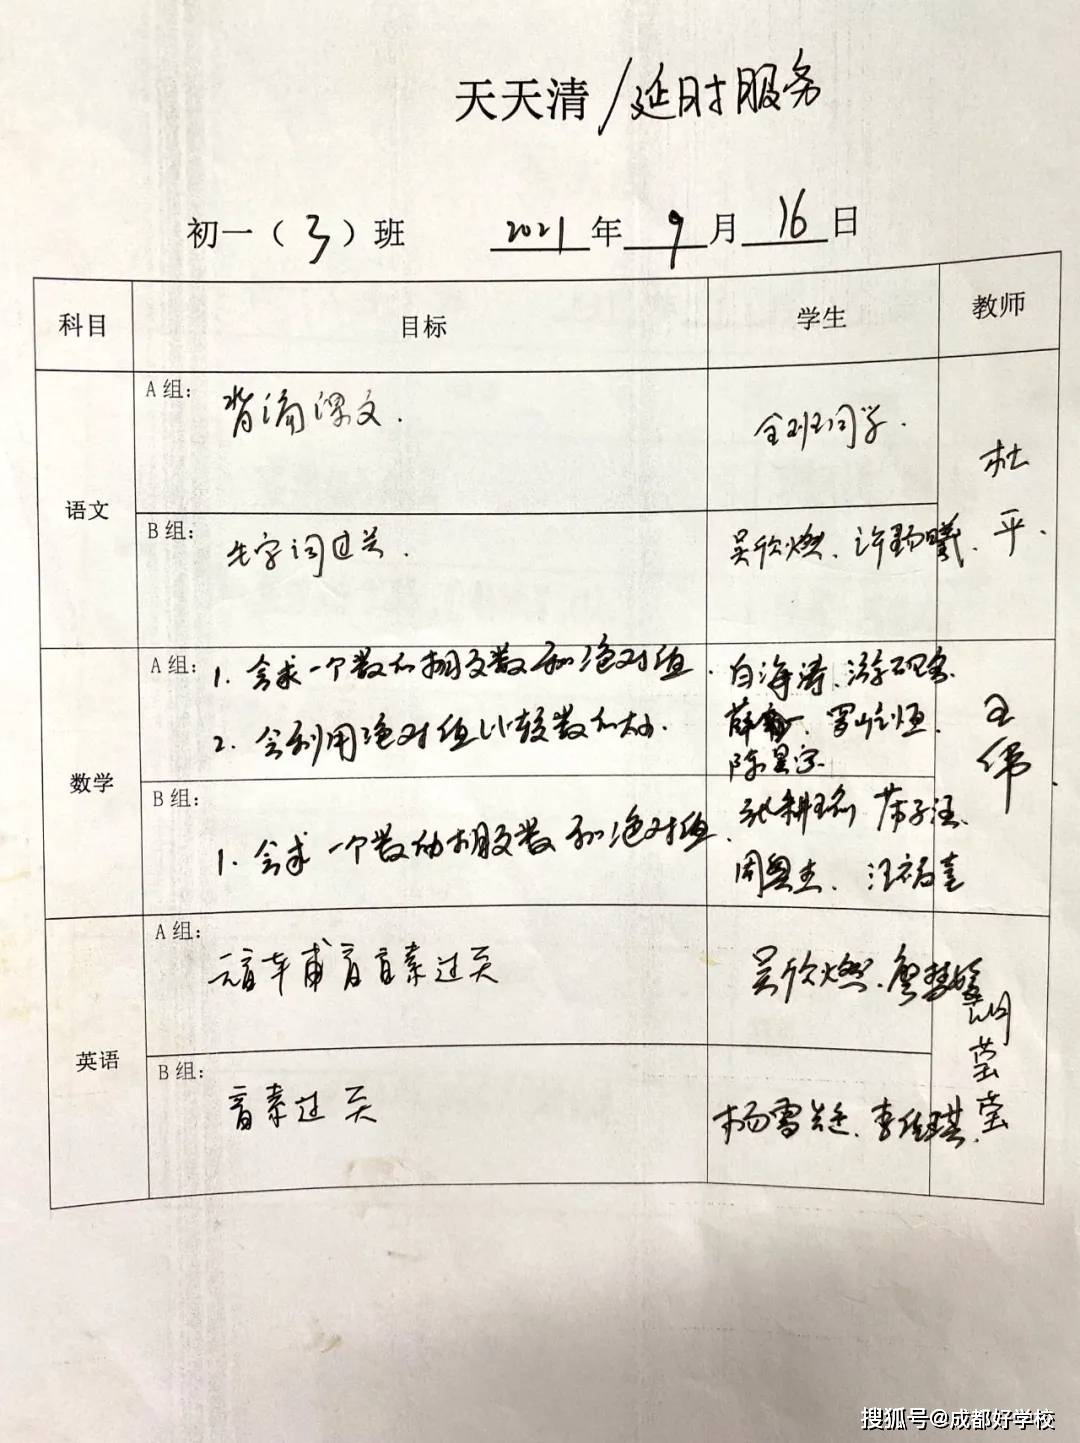 天天清/延时服务
初一（3）班 2021年9月16日
科目 目标 学生 教师
语文
A组：背诵课文. 全班同学.
B组：生字词过关. 吴欣燃、许
杜平.
数学
A组：1. 会求一个数的相反数和绝对值.
2. 会利用绝对值比较数的大小.
白海涛、游
薛 罗 恒、
陈昱宏
B组：1. 会求一个数的相反数和绝对值.
张耕 子汪、
周 杰、汪
王伟
英语
A组：元音车甫音音素过关 吴欣燃、廖慧媛
B组：音素过关 杨雪 、李佳琪、
莹莹
搜狐号@成都好学校